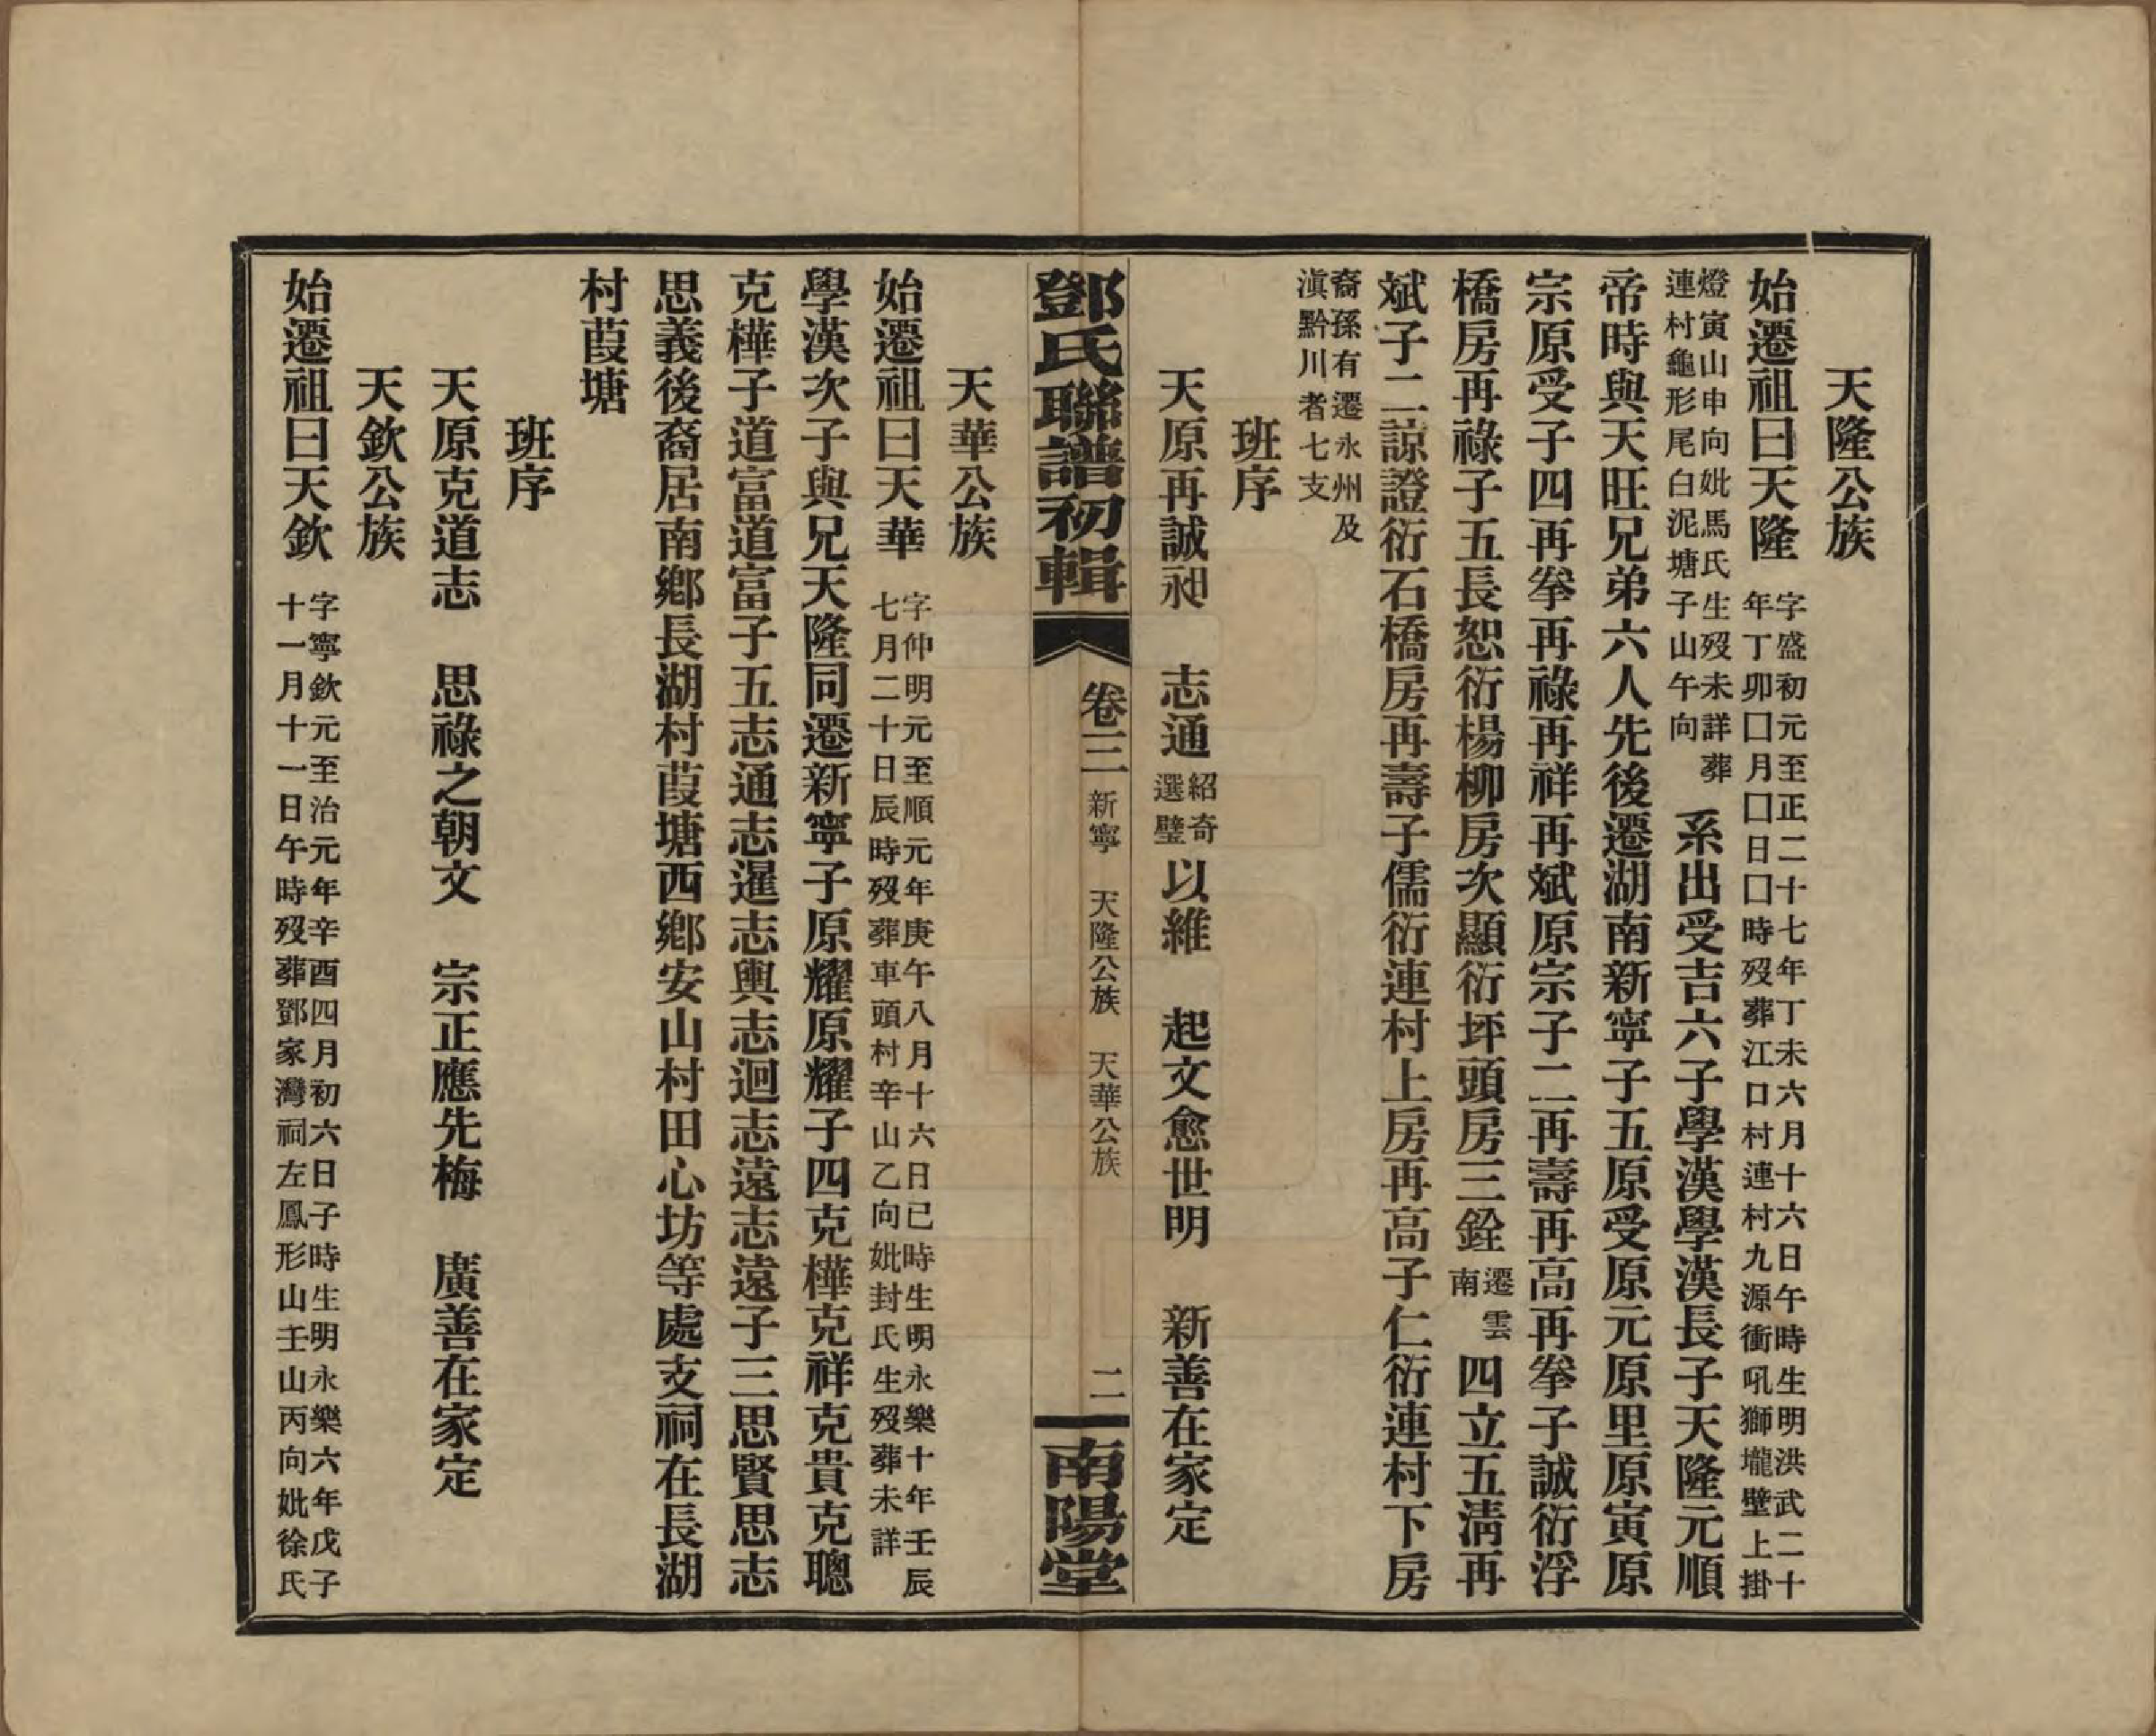 天隆公族
始遷祖曰天隆 字盛初元至正二十七年丁未六月十六日午時生明洪武二十
年丁卯囗月囗日囗時歿葬江口村連村九源衝吼獅壠壁上掛
燈寅山申向妣馬氏生歿未詳葬
連村龜形尾白泥塘子山午向 系出受吉六子學漢學漢長子天隆元順
帝時與天旺兄弟六人先後遷湖南新寧子五原受原元原里原寅原
宗原受子四再拳再祿再祥再斌原宗子二再壽再高再拳子誠衍浮
橋房再祿子五長恕衍楊柳房次顯衍坪頭房三銓 遷雲
南 四立五淸再
斌子二諒證衍石橋房再壽子儒衍連村上房再高子仁衍連村下房
裔孫有遷永州及
滇黔川者七支
班序
天原再誠昶 志通 紹奇
選璧 以維 起文愈世明 新善在家定
鄧氏聯譜初輯 卷三 新寧 天隆公族 天華公族 二 南陽堂
天華公族
始遷祖曰天華 字仲明元至順元年庚午八月十六日巳時生明永樂十年壬辰
七月二十日辰時歿葬車頭村辛山乙向妣封氏生歿葬未詳
學漢次子與兄天隆同遷新寧子原耀原耀子四克樺克祥克貴克聰
克樺子道富道富子五志通志暹志輿志迴志遠志遠子三思賢思志
思義後裔居南鄉長湖村葭塘西鄉安山村田心坊等處支祠在長湖
村葭塘
班序
天原克道志 思祿之朝文 宗正應先梅 廣善在家定
天欽公族
始遷祖曰天欽 字寧欽元至治元年辛酉四月初六日子時生明永樂六年戊子
十一月十一日午時歿葬鄧家灣祠左鳳形山壬山丙向妣徐氏